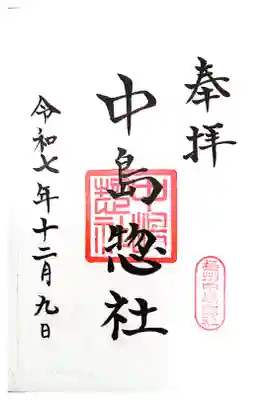 奉拝
中島惣社
令和七年十二月九日